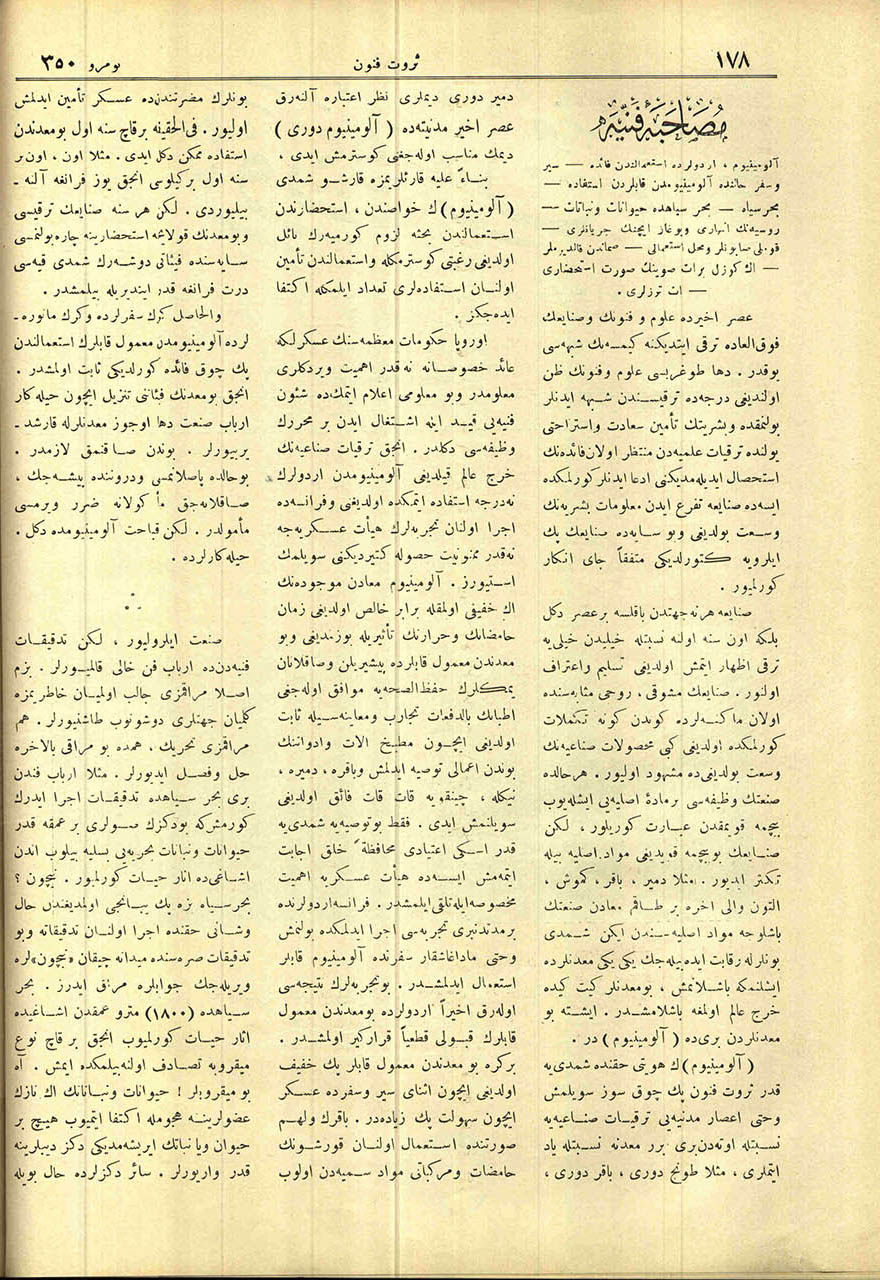 ١٧٨
ثروت فنون
نومرو ٣٥٠
مصاحبهٔ فنیه
آلومینیوم ، اردولرده استعمالندن فائده — سیر
وسفر حالنده آلومینیومدن قابلردن استفاده —
بحر سیاه — بحر سیاهده حیوانات ونباتات —
روسیه‌نك انهاری وبوغاز ایچنك جریانلری —
قونلی صابونلر ومحل استعمالی — صماندن قالدیرملر
— اك كوزل برات صوینك صورت استحضاری
— ات ترزلری .
عصر اخیرده علوم و فنونك وصنایعك
فوق‌العاده ترقی ایتدیكنه كیمسه‌نك شبهه‌سی
یوقدر . دها طوغریسی علوم وفنونك ظن
اولندیغی درجه‌ده ترقیسندن شبهه ایدنلر
بولنمقده وبشریتك تأمین سعادت واستراحتی
یولنده ترقیات علمیه‌دن منتظر اولان فائده‌نك
استحصال ایدیله‌مدیكنی ادعا ایدنلر كورلمكده
ایسه‌ده صنایعه تفرع ایدن معلومات بشریه‌نك
وسعت بولدیغی وبو سایه‌ده صنایعك پك
ایلرویه كتورلدیكی متفقاً جای انكار
كورلمیور .
صنایعه هر نه جهتدن باقلسه بر عصر دكل
بلكه اون سنه اولنه نسبتله خیلیدن خیلی‌یه
ترقی اظهار ایتمش اولدیغی تسلیم واعتراف
اولنور . صنایعك مشوقی ، روحی مثابه‌سنده
اولان ماكنه‌لرده كوندن كونه تكملات
كورلمكده اولدیغی كبی محصولات صناعیه‌نك
وسعت بولدیغی‌ده مشهود اولیور . هر حالده
صنعتك وظیفه‌سی بر مادهٔ اصلیه‌یی ایشله‌یوب
بیچمه قویمقدن عبارت كوریلور ، لكن
صنایعك بو بیچمه قویدیغی مواد اصلیه بیله
تكثر ایدیور . مثلا دمیر ، باقر ، كموش ،
التون والی اخره بر طاقم معادن صنعتك
باشلوجه مواد اصلیه‌سندن ایكن شمدی
بونلرله رقابت ایده‌بیله‌جك یكی یكی معدنلرده
ایشلنمكه باشلانمش ، بومعدنلر كیت كیده
خرج عالم اولمغه باشلامشدر . ایشته بو
معدنلردن بری‌ده ( آلومینیوم ) در .
( آلومینیوم ) ك هویتی حقنده شمدی‌یه
قدر ثروت فنون پك چوق سوز سویلمش
وحتی اعصار مدنیه‌یی ترقیات صناعیه‌یه
نسبتله اوته‌دن‌بری برر معدنه نسبتله یاد
ایتملری ، مثلا طونج دوری ، باقر دوری ،
دمیر دوری دیملری نظر اعتباره آلنه‌رق
عصر اخیر مدنیته‌ده ( آلومینیوم دوری )
دیمك مناسب اوله‌جغنی كوسترمش ایدی ،
بناءً علیه قارئلریمزه قارشو شمدی
( آلومینیوم ) ك خواصندن ، استحضارندن
استعمالندن بحثه لزوم كورمیه‌رك نائل
اولدیغی رغبتی كوسترمكله واستعمالندن تأمین
اولنان استفاده‌لری تعداد ایلمكله اكتفا
ایده‌جكز .
اوروپا حكومات معظمه‌سنك عسكرلكه
عائد خصوصاته نه‌قدر اهمیت ویردكلری
معلومدر وبو معلومی اعلام ایتمك‌ده شئون
فنیه‌یی قید ایله اشتغال ایدن بر محررك
وظیفه‌سی دكلدر . انجق ترقیات صناعیه‌نك
خرج عالم قیلدیغی آلومینیومدن اردولرك
نه‌درجه استفاده ایتمكده اولدیغی وفرانسه‌ده
اجرا اولنان تجربه‌لرك هیأت عسكریه‌جه
نه‌قدر ممنونیت حصوله كتیردیكنی سویلمك
استیورز . آلومینیوم معادن موجوده‌نك
اك خفیفی اولمقله برابر خالص اولدیغی زمان
حامضاتك وحرارتك تأثیریله بوزلمدیغی وبو
معدندن معمول قابلرده پیشیریلن وصاقلانان
یمكلرك حفظ‌الصحه‌یه موافق اوله‌جغی
اطبانك بالدفعات تجارب ومعاینه‌سیله ثابت
اولدیغی ایچون مطبخ الات وادواتنك
بوندن اعمالی توصیه ایدلمش وباقره ، دمیره ،
نیكله ، چینقویه قات قات فائق اولدیغی
سویلنمش ایدی . فقط بوتوصیه‌یه شمدی‌یه
قدر اسكی اعتیادی محافظةً خلق اجابت
ایتمه‌مش ایسه‌ده هیأت عسكریه اهمیت
مخصوصه ایله تلقی ایلمشدر . فرانسه اردولرنده
بر مدتدنبری تجربه‌سی اجرا ایدلمكده بولنمش
وحتی ماداغاسقار سفرنده آلومینیوم قابلر
استعمال ایدلمشدر . بوتجربه‌لرك نتیجه‌سی
اوله‌رق اخیراً اردولرده بومعدندن معمول
قابلرك قبولی قطعیاً قرار كیر اولمشدر .
بركره بو معدندن معمول قابلر پك خفیف
اولدیغی ایچون اثنای سیر وسفرده عسكر
ایچون سهولت پك زیاده‌در . باقرك ولهم
صورتنده استعمال اولنان قورشونك
حامضات ومركباتی مواد سمیه‌دن اولوب
بونلرك مضرتندن‌ده عسكر تأمین ایدلمش
اولیور . فی‌الحقیقه بر قاچ سنه اول بو معدندن
استفاده ممكن دكل ایدی . مثلا اون ، اون بر
سنه اول بر كیلوسی انجق یوز فرانغه آلنه-
بیلیوردی . لكن هر سنه صنایعك ترقیسی
وبو معدنك قولایجه استحضارینه چاره بولنمسی
سایه‌سنده فیئاتی دوشه‌رك شمدی قیه‌سی
درت فرانغه قدر ایندیریله بیلمشدر .
والحاصل كرك سفرلرده وكرك مانوره-
لرده آلومینیومدن معمول قابلرك استعمالندن
پك چوق فائده كورلدیكی ثابت اولمشدر .
انجق بومعدنك فیئاتنی تنزیل ایچون حیله كار
ارباب صنعت دها اوجوز معدنلرله قارشد-
یریورلر . بوندن صاقنمق لازمدر .
بوحالده پاصلانمسی ودروننده پیشه‌جك ،
صاقلانه‌جق مأكولاته ضرر ویرمسی
مأمولدر . لكن قباحت آلومینیومده دكل .
حیله كارلرده .
صنعت ایلرولیور ، لكن تدقیقات
فنیه‌دن‌ده ارباب فن خالی قالمیورلر . بزم
اصلا مراقمزی جالب اولمیان خاطریمزه
كلمیان جهتلری دوشونوب طاشنیورلر . هم
مراقمزی تحریك ، همده بو مراقی بالاخره
حل وفصل ایدیورلر . مثلا ارباب فندن
بری بحر سیاهده تدقیقات اجرا ایدرك
كورمش كه بودكزك صولری بر عمقه قدر
حیوانات ونباتات بحریه‌یی بسلیه بیلوب اندن
اشاغی‌ده اثار حیات كورلمیور . نیچون ؟
بحر سیاه بزه پك یبانجی اولمدیغندن حال
وشانی حقنده اجرا اولنان تدقیقاته وبو
تدقیقات صره‌سنده میدانه چیقان «نیچون» لره
ویریله‌جك جوابلره مراق ایدرز . بحر
سیاهده (١٨٠٠) مترو عمقدن اشاغیده
اثار حیات كورلمیوب انجق بر قاچ نوع
میقروبه تصادف اولنه‌بیلمكده ایمش . آه
بو میقروبلر ! حیوانات ونباتاتك اك نازك
عضولرینه هجومله اكتفا ایتمیوب هیچ بر
حیوان ویا نباتك ایریشه‌مدیكی دكز دیبلرینه
قدر واریورلر . سائر دكزلرده حال بویله